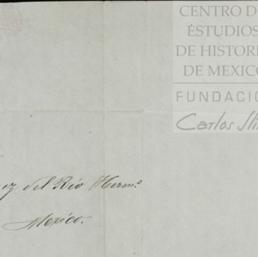 CENTRO D
ESTUDIOS
DE HISTORI
DE MEXICO
FUNDACIÓ
Carlos Sli
z del Rio Herm.ˢ
Mexico.